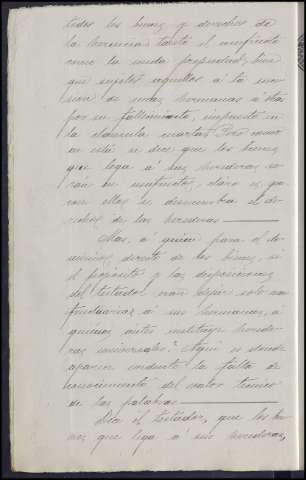 todos los bienes y derechos de
la herencia tanto el usufructo
como la nuda propiedad, bien
que sujetos aquellos á la
sion de unas hermanas á otras
por su fallecimiento, impuesto en
la cláusula cuarta. Pero como
en esta se dice que los bienes
que lega á sus herederas se-
rán en usufructo, claro es que
con ellos se desmembra el de-
recho de las herederas
Mas, á quien pasa el do-
minio directo de los bienes, si
el propósito y las disposiciones
del testador eran dejar solo usu-
fructuarias á sus hermanas, á
quienes antes instituye herede-
ras universales? Aqui es donde
aparece la falta de
conocimiento del valor técnico
de las palabras
Dice el testador, que los bie-
nes que lega á sus herederas,